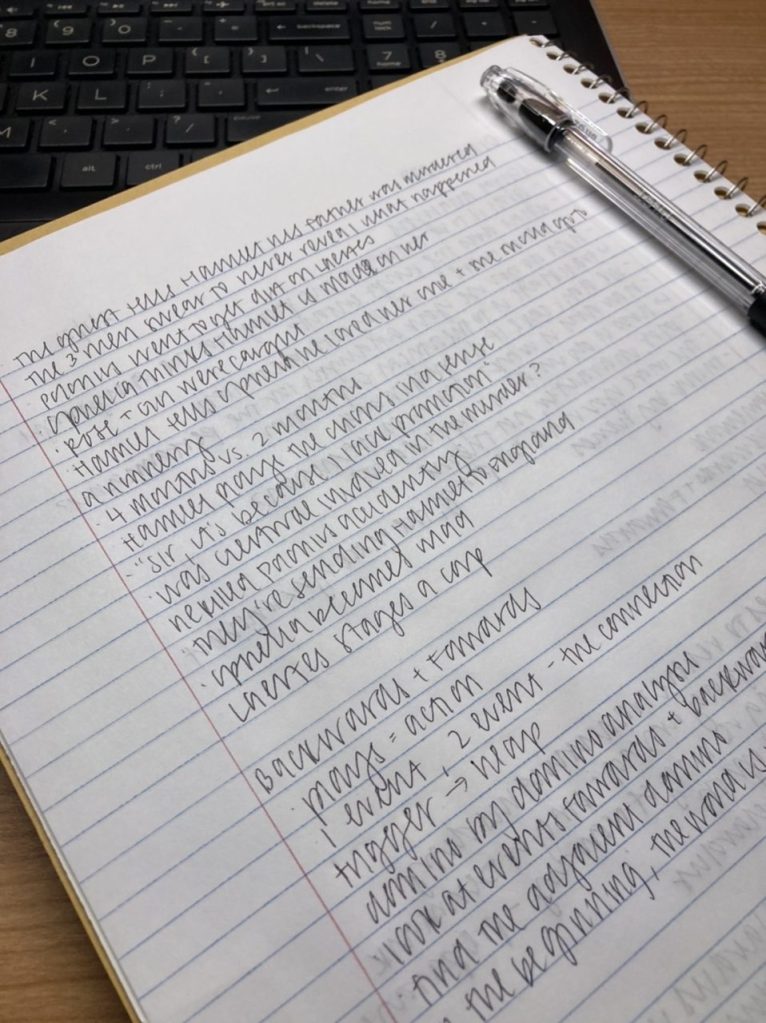 8 9 0 - = backspace num lock
I O P [ ] \ 7 home 8
K L : ; " ' enter
M < , > . ? /
alt ctrl
The ghost tells Hamlet his father was murdered
The 3 men swear to never reveal what happened
Polonius went to get dirt on Laertes
· Ophelia thinks Hamlet is mad on her
· Rose + Gil were caught
Hamlet tells Ophelia he loved her one + the moved up to
a nunnery
· 4 months vs. 2 months
Hamlet plays the chorus in a sense
· "Sir it's because I lack promotion"
· was Gertrude involved in the murder?
He killed Polonius accidently
They're sending Hamlet to England
· Ophelia becomes mad
Laertes stages a coup
Backwards + Forwards
· plays = action
1 event, 2 event - the connection
trigger → heap
domino by domino analysis
look at events forwards + backwards
· find the adjacent domino
the beginning, the world is